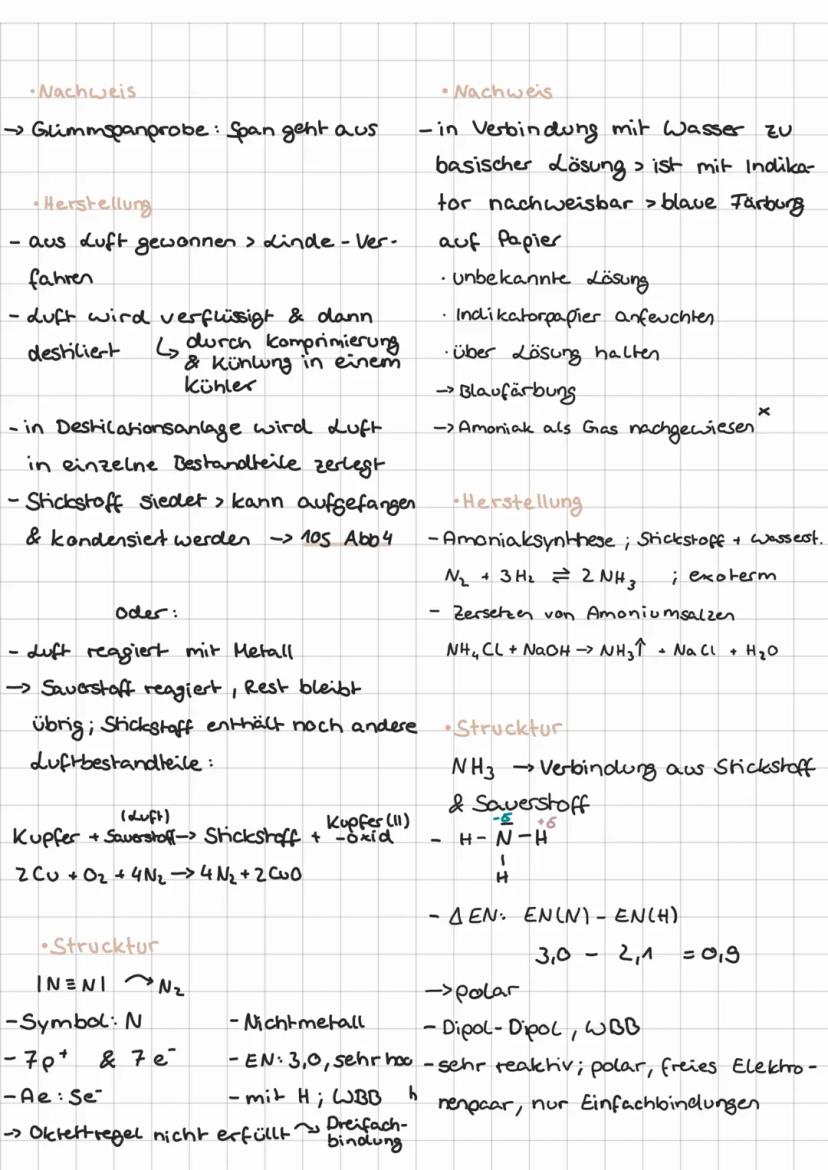 • Nachweis
→ Glimmspanprobe: Span geht aus
• Herstellung
- aus Luft gewonnen > Linde-Ver-
fahren
- Luft wird verflüssigt & dann
destiliert ↳ durch Komprimierung
& Kühlung in einem
Kühler
- in Destilationsanlage wird Luft
in einzelne Bestandteile zerlegt
- Stickstoff siedet > kann aufgefangen
& kondensiert werden → 105 Abb4
oder:
- Luft reagiert mit Metall
→ Sauerstoff reagiert, Rest bleibt
übrig; Stickstoff enthält noch andere
Luftbestandteile:
(Luft)
Kupfer + Sauerstoff → Stickstoff + Kupfer(II)
-oxid
2 Cu + O₂ + 4 N₂ → 4 N₂ + 2 CuO
• Strucktur
|N≡N| ↷ N₂
- Symbol: N - Nichtmetall
- 7p⁺ & 7e⁻ - EN: 3,0, sehr hoo
h
- Ae: 5e⁻ - mit H; WBB
→ Oktettregel nicht erfüllt ↝ Dreifach-
bindung
• Nachweis
- in Verbindung mit Wasser zu
basischer Lösung > ist mit Indika-
tor nachweisbar > blaue Färbung
auf Papier
· unbekannte Lösung
· Indikatorpapier anfeuchten
· über Lösung halten
→ Blaufärbung
→ Amoniak als Gas nachgewiesen ˣ
• Herstellung
- Amoniaksynthese; Stickstoff + Wasserst.
N₂ + 3 H₂ ⇌ 2 NH₃ ; exoterm
- Zersetzen von Amoniumsalzen
NH₄Cl + NaOH → NH₃↑ + NaCl + H₂O
• Strucktur
NH₃ → Verbindung aus Stickstoff
& Sauerstoff
-δ +δ
- H - N - H
|
H
- Δ EN: EN(N) - EN(H)
3,0 - 2,1 = 0,9
→ polar
- Dipol-Dipol, WBB
- sehr reaktiv; polar, freies Elektro-
nenpaar, nur Einfachbindungen